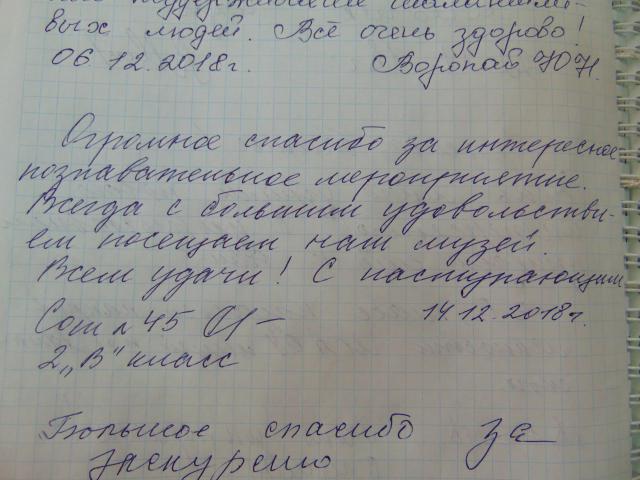 поддержание талантли-
вых людей. Всё очень здорово!
06 12.2018г. Воропай Ю Н.
Огромное спасибо за интересное
познавательное мероприятие.
Всегда с большим удовольстви-
ем посещаем наш музей.
Всем удачи! С наступающим
Сош № 45 14.12.2018г.
2 „В" класс
Большое спасибо за
экскурсию